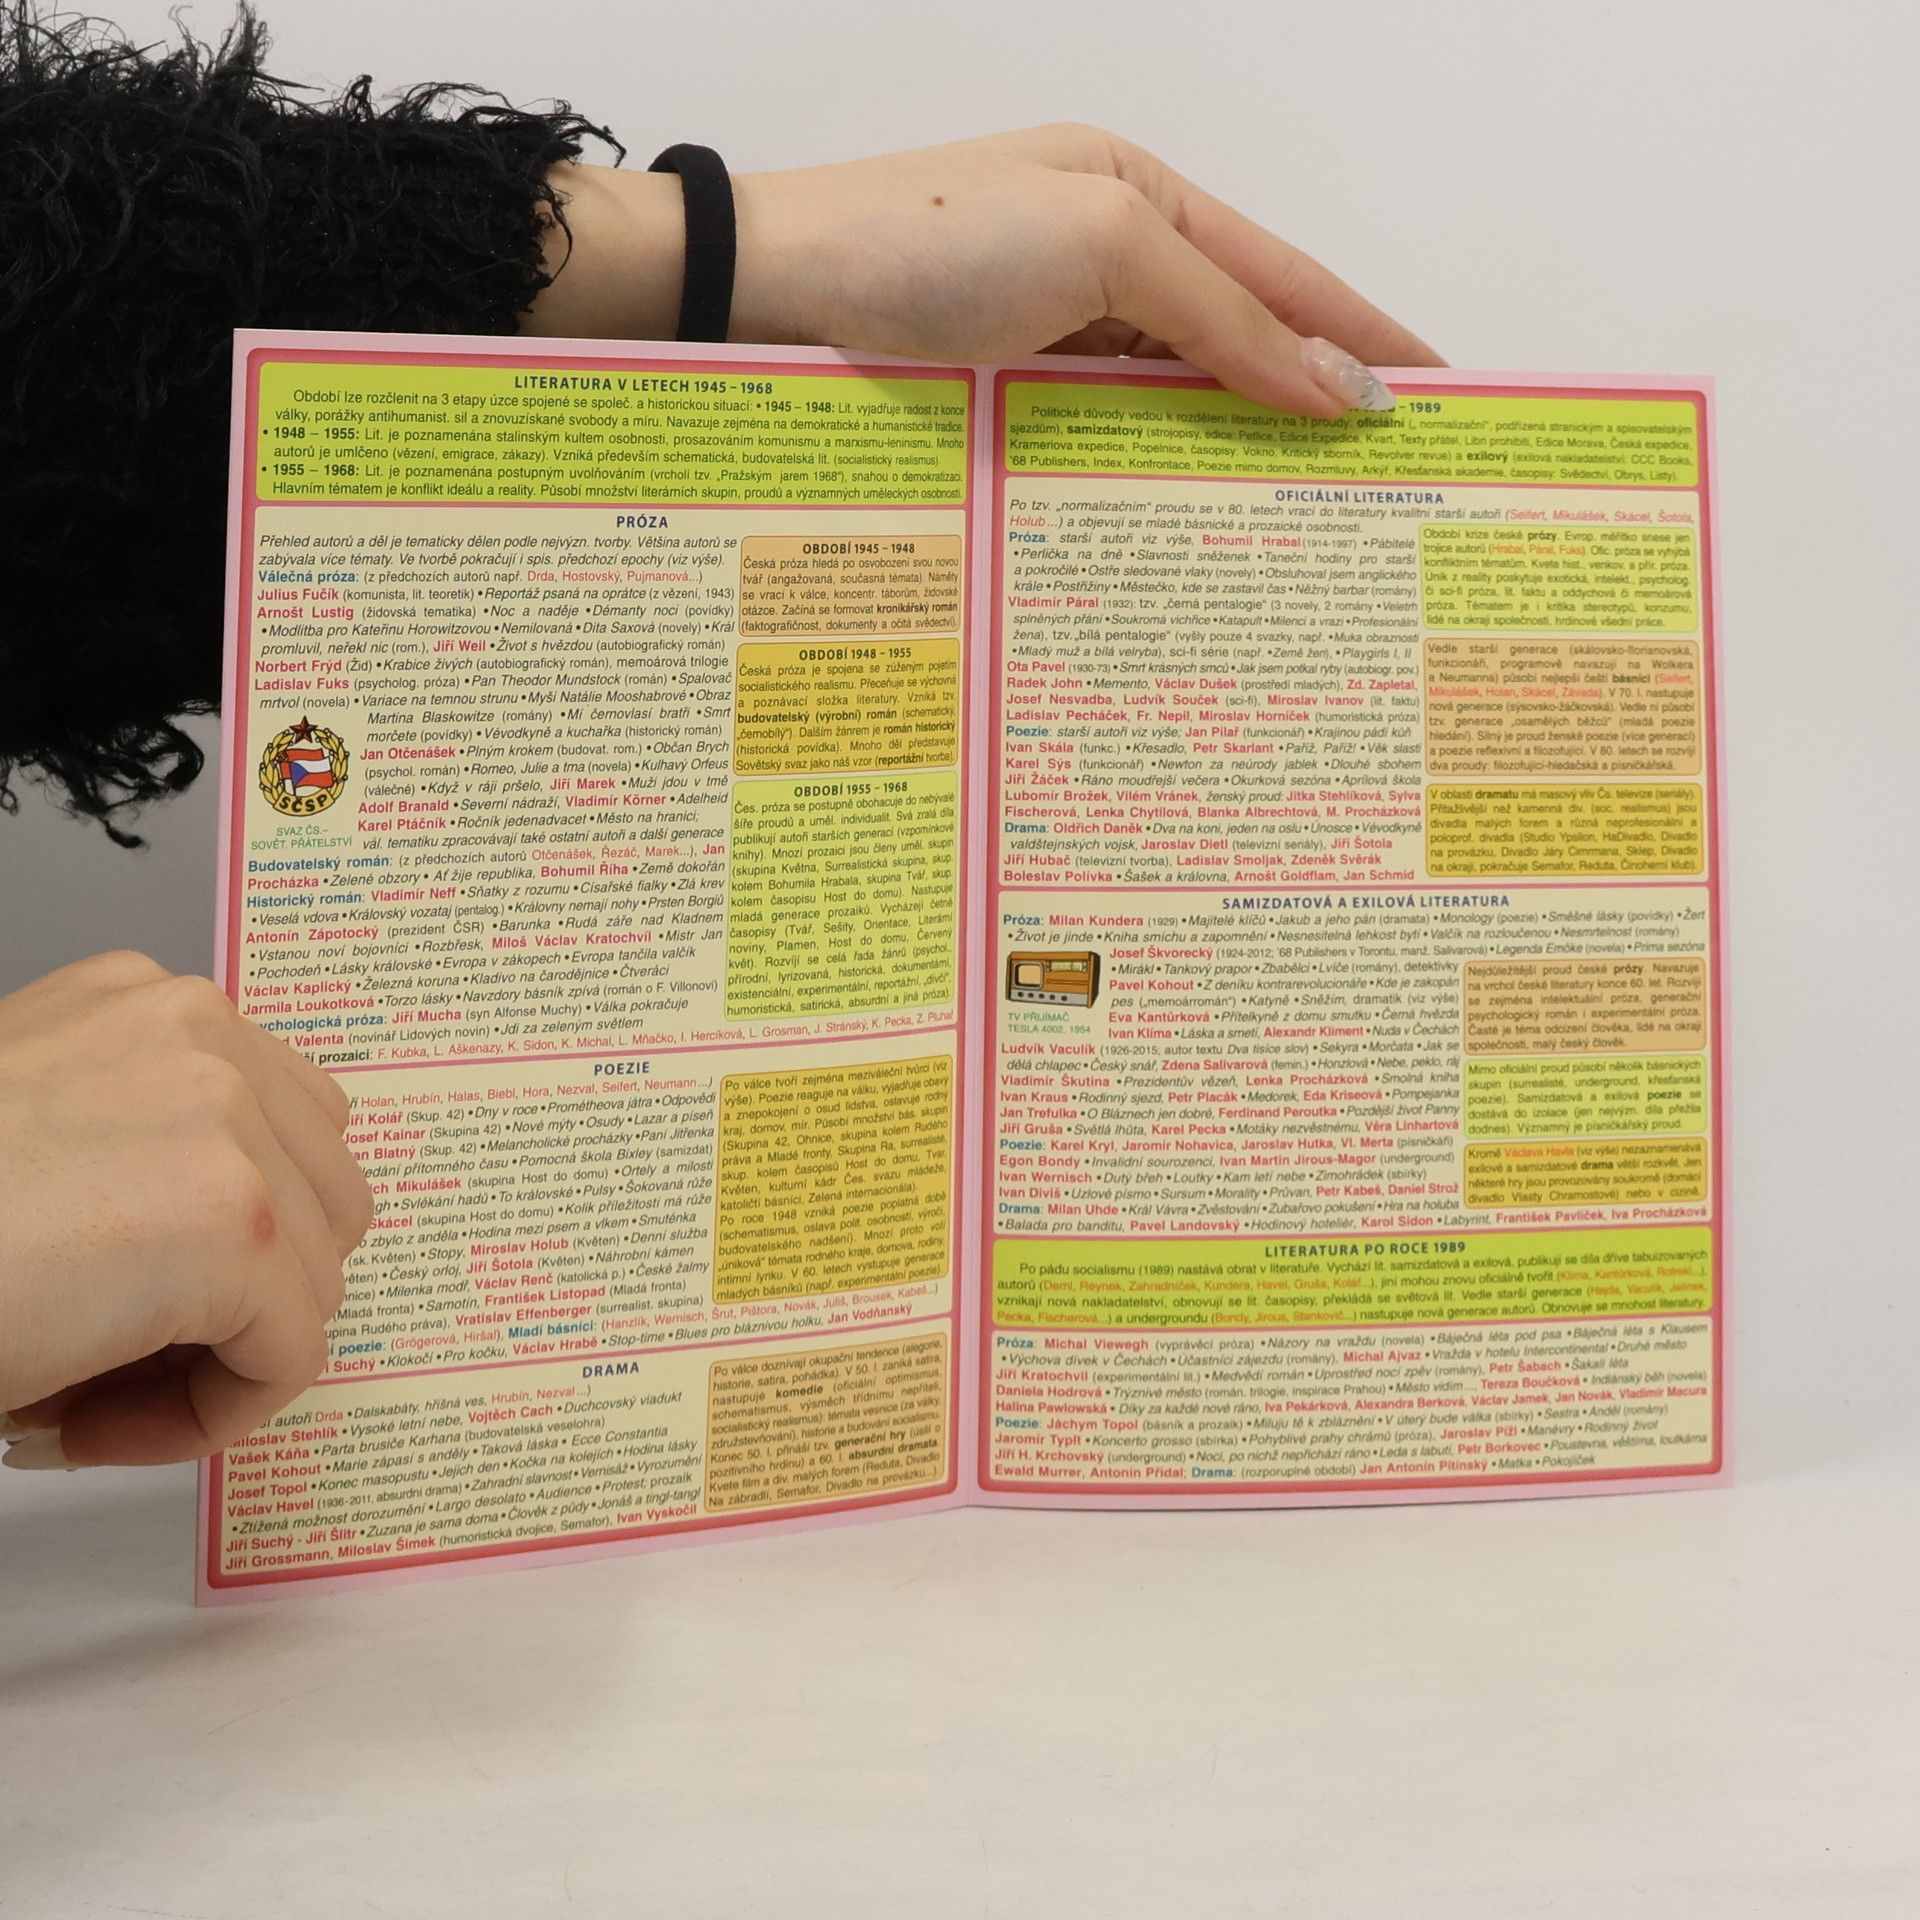 LITERATURA V LETECH 1945 – 1968
Období lze rozčlenit na 3 etapy úzce spojené se společ. a historickou situací: • 1945 – 1948: Lit. vyjadřuje radost z konce
války, porážky antihumanist. sil a znovuzískané svobody a míru. Navazuje zejména na demokratické a humanistické tradice.
• 1948 – 1955: Lit. je poznamenána stalinským kultem osobnosti, prosazováním komunismu a marxismu-leninismu. Mnoho
autorů je umlčeno (vězení, emigrace, zákazy). Vzniká především schematická, budovatelská lit. (socialistický realismus).
• 1955 – 1968: Lit. je poznamenána postupným uvolňováním (vrcholí tzv. „Pražským jarem 1968“), snahou o demokratizaci.
Hlavním tématem je konflikt ideálu a reality. Působí množství literárních skupin, proudů a významných uměleckých osobností.
PRÓZA
Přehled autorů a děl je tematicky dělen podle nejvýzn. tvorby. Většina autorů se
zabývala více tématy. Ve tvorbě pokračují i spis. předchozí epochy (viz výše).
Válečná próza: (z předchozích autorů např. Drda, Hostovský, Pujmanová...)
Julius Fučík (komunista, lit. teoretik) • Reportáž psaná na oprátce (z vězení, 1943)
Arnošt Lustig (židovská tematika) • Noc a naděje • Démanty noci (povídky)
• Modlitba pro Kateřinu Horowitzovou • Nemilovaná • Dita Saxová (novely) • Král
promluvil, neřekl nic (rom.), Jiří Weil • Život s hvězdou (autobiografický román)
Norbert Frýd (Žid) • Krabice živých (autobiografický román), memoárová trilogie
Ladislav Fuks (psycholog. próza) • Pan Theodor Mundstock (román) • Spalovač
mrtvol (novela) • Variace na temnou strunu • Myši Natálie Mooshabrové • Obraz
Martina Blaskowitze (romány) • Mí černovlasí bratři • Smrt
morčete (povídky) • Vévodkyně a kuchařka (historický román)
Jan Otčenášek • Plným krokem (budovat. rom.) • Občan Brych
(psychol. román) • Romeo, Julie a tma (novela) • Kulhavý Orfeus
(válečné) • Když v ráji pršelo, Jiří Marek • Muži jdou v tmě
Adolf Branald • Severní nádraží, Vladimír Körner • Adelheid
Karel Ptáčník • Ročník jedenadvacet • Město na hranici;
vál. tematiku zpracovávají také ostatní autoři a další generace
SČSP
SVAZ ČS.–
SOVĚT. PŘÁTELSTVÍ
Budovatelský román: (z předchozích autorů Otčenášek, Řezáč, Marek...), Jan
Procházka • Zelené obzory • Ať žije republika, Bohumil Říha • Země dokořán
Historický román: Vladimír Neff • Sňatky z rozumu • Císařské fialky • Zlá krev
• Veselá vdova • Královský vozataj (pentalog.) • Královny nemají nohy • Prsten Borgiů
Antonín Zápotocký (prezident ČSR) • Barunka • Rudá záře nad Kladnem
• Vstanou noví bojovníci • Rozbřesk, Miloš Václav Kratochvíl • Mistr Jan
• Pochodeň • Lásky královské • Evropa v zákopech • Evropa tančila valčík
Václav Kaplický • Železná koruna • Kladivo na čarodějnice • Čtveráci
Jarmila Loukotková • Torzo lásky • Navzdory básník zpívá (román o F. Villonovi)
ychologická próza: Jiří Mucha (syn Alfonse Muchy) • Válka pokračuje
Valenta (novinář Lidových novin) • Jdi za zeleným světlem
prozaici: F. Kubka, L. Aškenazy, K. Sidon, K. Michal, L. Mňačko, I. Hercíková, L. Grosman, J. Stránský, K. Pecka, Z. Pluhař
OBDOBÍ 1945 - 1948
Česká próza hledá po osvobození svou novou
tvář (angažovaná, současná témata). Náměty
se vrací k válce, koncentr. táborům, židovské
otázce. Začíná se formovat kronikářský román
(faktografičnost, dokumenty a očitá svědectví).
OBDOBÍ 1948 - 1955
Česká próza je spojena se zúženým pojetím
socialistického realismu. Přeceňuje se výchovná
a poznávací složka literatury. Vzniká tzv.
budovatelský (výrobní) román (schematický,
„černobílý“). Dalším žánrem je román historický
(historická povídka). Mnoho děl představuje
Sovětský svaz jako náš vzor (reportážní tvorba).
OBDOBÍ 1955 - 1968
Čes. próza se postupně obohacuje do nebývalé
šíře proudů a uměl. individualit. Svá zralá díla
publikují autoři starších generací (vzpomínkové
knihy). Mnozí prozaici jsou členy uměl. skupin
(skupina Května, Surrealistická skupina, skup.
kolem Bohumila Hrabala, skupina Tvář, skup.
kolem časopisu Host do domu). Nastupuje
mladá generace prozaiků. Vycházejí četné
časopisy (Tvář, Sešity, Orientace, Literární
noviny, Plamen, Host do domu, Červený
květ). Rozvíjí se celá řada žánrů (psychol.,
přírodní, lyrizovaná, historická, dokumentární,
existenciální, experimentální, reportážní, „dívčí“,
humoristická, satirická, absurdní a jiná próza).
POEZIE
Holan, Hrubín, Halas, Biebl, Hora, Nezval, Seifert, Neumann...)
Kolář (Skup. 42) • Dny v roce • Prométheova játra • Odpovědi
Josef Kainar (Skupina 42) • Nové mýty • Osudy • Lazar a píseň
Blatný (Skup. 42) • Melancholické procházky • Paní Jitřenka
přítomného času • Pomocná škola Bixley (samizdat)
Mikulášek (skupina Host do domu) • Ortely a milosti
• Svlékání hadů • To královské • Pulsy • Šokovaná růže
Skácel (skupina Host do domu) • Kolik příležitostí má růže
zbylo z anděla • Hodina mezi psem a vlkem • Smuténka
(sk. Květen) • Stopy, Miroslav Holub (Květen) • Denní služba
• Český orloj, Jiří Šotola (Květen) • Náhrobní kámen
• Milenka modř, Václav Renč (katolická p.) • České žalmy
(Mladá fronta) • Samotín, František Listopad (Mladá fronta)
Rudého práva), Vratislav Effenberger (surrealist. skupina)
poezie: (Grögerová, Hiršal), Mladí básníci: (Hanzlík, Wernisch, Šrut, Pištora, Novák, Juliš, Brousek, Kabeš...)
Suchý • Klokočí • Pro kočku, Václav Hrabě • Stop-time • Blues pro bláznivou holku, Jan Vodňanský
Po válce tvoří zejména meziváleční tvůrci (viz
výše). Poezie reaguje na válku, vyjadřuje obavy
a znepokojení o osud lidstva, oslavuje rodný
kraj, domov, mír. Působí množství bás. skupin
(Skupina 42, Ohnice, skupina kolem Rudého
práva a Mladé fronty, Skupina Ra, surrealisté,
skup. kolem časopisů Host do domu, Tvar,
Květen, kulturní kádr Čes. svazu mládeže,
katoličtí básníci, Zelená internacionála).
Po roce 1948 vzniká poezie poplatná době
(schematismus, oslava polit. osobností, výročí,
budovatelského nadšení). Mnozí proto volí
„úniková“ témata rodného kraje, domova, rodiny,
intimní lyriku. V 60. letech vystupuje generace
mladých básníků (např. experimentální poezie).
DRAMA
autoři Drda • Dalskabáty, hříšná ves, Hrubín, Nezval...)
Miloslav Stehlík • Vysoké letní nebe, Vojtěch Cach • Duchcovský viadukt
Vašek Káňa • Parta brusiče Karhana (budovatelská veselohra)
Pavel Kohout • Marie zápasí s anděly • Taková láska • Ecce Constantia
Josef Topol • Konec masopustu • Jejich den • Kočka na kolejích • Hodina lásky
Václav Havel (1936-2011, absurdní drama) • Zahradní slavnost • Vernisáž • Vyrozumění
• Ztížená možnost dorozumění • Largo desolato • Audience • Protest; prozaik
Jiří Suchý - Jiří Šlitr • Zuzana je sama doma • Člověk z půdy • Jonáš a tingl-tangl
Jiří Grossmann, Miloslav Šimek (humoristická dvojice, Semafor), Ivan Vyskočil
Po válce doznívají okupační tendence (alegorie,
historie, satira, pohádka). V 50. l. zaniká satira,
nastupuje komedie (oficiální optimismus,
schematismus, výsměch třídnímu nepříteli,
socialistický realismus): témata vesnice (za války,
združstevňování), historie a budování socialismu.
Konec 50. l. přináší tzv. generační hry (úsilí o
pozitivního hrdinu) a 60. l. absurdní dramata.
Kvete film a div. malých forem (Reduta, Divadlo
Na zábradlí, Semafor, Divadlo na provázku...)
– 1989
Politické důvody vedou k rozdělení literatury na 3 proudy: oficiální („normalizační“, podřízená stranickým a spisovatelským
sjezdům), samizdatový (strojopisy, edice: Petlice, Edice Expedice, Kvart, Texty přátel, Libri prohibiti, Edice Morava, Česká expedice,
Krameriova expedice, Popelnice, časopisy: Vokno, Kritický sborník, Revolver revue) a exilový (exilová nakladatelství: CCC Books,
'68 Publishers, Index, Konfrontace, Poezie mimo domov, Rozmluvy, Arkýř, Křesťanská akademie, časopisy: Svědectví, Obrys, Listy).
OFICIÁLNÍ LITERATURA
Po tzv. „normalizačním“ proudu se v 80. letech vrací do literatury kvalitní starší autoři (Seifert, Mikulášek, Skácel, Šotola,
Holub...) a objevují se mladé básnické a prozaické osobnosti.
Próza: starší autoři viz výše, Bohumil Hrabal (1914-1997) • Pábitelé
• Perlička na dně • Slavnosti sněženek • Taneční hodiny pro starší
a pokročilé • Ostře sledované vlaky (novely) • Obsluhoval jsem anglického
krále • Postřižiny • Městečko, kde se zastavil čas • Něžný barbar (romány)
Vladimír Páral (1932): tzv. „černá pentalogie“ (3 novely, 2 romány • Veletrh
splněných přání • Soukromá vichřice • Katapult • Milenci a vrazi • Profesionální
žena), tzv. „bílá pentalogie“ (vyšly pouze 4 svazky, např. • Muka obraznosti
• Mladý muž a bílá velryba), sci-fi série (např. • Země žen), • Playgirls I, II
Ota Pavel (1930-73) • Smrt krásných srnců • Jak jsem potkal ryby (autobiogr. pov.)
Radek John • Memento, Václav Dušek (prostředí mladých), Zd. Zapletal,
Josef Nesvadba, Ludvík Souček (sci-fi), Miroslav Ivanov (lit. faktu)
Ladislav Pecháček, Fr. Nepil, Miroslav Horníček (humoristická próza)
Poezie: starší autoři viz výše; Jan Pilař (funkcionář) • Krajinou pádí kůň
Ivan Skála (funkc.) • Křesadlo, Petr Skarlant • Paříž, Paříž! • Věk slasti
Karel Sýs (funkcionář) • Newton za neúrody jablek • Dlouhé sbohem
Jiří Žáček • Ráno moudřejší večera • Okurková sezóna • Aprílová škola
Lubomír Brožek, Vilém Vránek, ženský proud: Jitka Stehlíková, Sylva
Fischerová, Lenka Chytilová, Blanka Albrechtová, M. Procházková
Drama: Oldřich Daněk • Dva na koni, jeden na oslu • Únosce • Vévodkyně
valdštejnských vojsk, Jaroslav Dietl (televizní seriály), Jiří Šotola
Jiří Hubač (televizní tvorba), Ladislav Smoljak, Zdeněk Svěrák
Boleslav Polívka • Šašek a královna, Arnošt Goldflam, Jan Schmid
Období krize české prózy. Evrop. měřítko snese jen
trojice autorů (Hrabal, Páral, Fuks). Ofic. próza se vyhýbá
konfliktním tématům. Kvete hist., venkov. a přír. próza.
Únik z reality poskytuje exotická, intelekt., psycholog.
či sci-fi próza, lit. faktu a oddychová či memoárová
próza. Tématem je i kritika stereotypů, konzumu,
lidé na okraji společnosti, hrdinové všední práce.
Vedle starší generace (skálovsko-florianovská,
funkcionáři, programově navazují na Wolkera
a Neumanna) působí nejlepší čeští básníci (Seifert,
Mikulášek, Holan, Skácel, Závada). V 70. l. nastupuje
nová generace (sýsovsko-žáčkovská). Vedle ní působí
tzv. generace „osamělých běžců“ (mladá poezie
hledání). Silný je proud ženské poezie (více generací)
a poezie reflexivní a filozofující. V 80. letech se rozvíjí
dva proudy: filozofující-hledačská a písničkářská.
V oblasti dramatu má masový vliv Čs. televize (seriály).
Přitažlivější než kamenná div. (soc. realismus) jsou
divadla malých forem a různá neprofesionální a
poloprof. divadla (Studio Ypsilon, HaDivadlo, Divadlo
na provázku, Divadlo Járy Cimrmana, Sklep, Divadlo
na okraji, pokračuje Semafor, Reduta, Činoherní klub).
SAMIZDATOVÁ A EXILOVÁ LITERATURA
Próza: Milan Kundera (1929) • Majitelé klíčů • Jakub a jeho pán (dramata) • Monology (poezie) • Směšné lásky (povídky) • Žert
• Život je jinde • Kniha smíchu a zapomnění • Nesnesitelná lehkost bytí • Valčík na rozloučenou • Nesmrtelnost (romány)
Josef Škvorecký (1924-2012; '68 Publishers v Torontu, manž. Salivarová) • Legenda Emöke (novela) • Prima sezóna
• Mirákl • Tankový prapor • Zbabělci • Lvíče (romány), detektivky
Pavel Kohout • Z deníku kontrarevolucionáře • Kde je zakopán
pes („memoárromán“) • Katyně • Sněžím, dramatik (viz výše)
Eva Kantůrková • Přítelkyně z domu smutku • Černá hvězda
Ivan Klíma • Láska a smetí, Alexandr Kliment • Nuda v Čechách
TV PŘIJÍMAČ
TESLA 4002, 1954
Ludvík Vaculík (1926-2015; autor textu Dva tisíce slov) • Sekyra • Morčata • Jak se
dělá chlapec • Český snář, Zdena Salivarová (femin.) • Honzlová • Nebe, peklo, ráj
Vladimír Škutina • Prezidentův vězeň, Lenka Procházková • Smolná kniha
Ivan Kraus • Rodinný sjezd, Petr Placák • Medorek, Eda Kriseová • Pompejanka
Jan Trefulka • O Bláznech jen dobré, Ferdinand Peroutka • Pozdější život Panny
Jiří Gruša • Světlá lhůta, Karel Pecka • Motáky nezvěstnému, Věra Linhartová
Poezie: Karel Kryl, Jaromír Nohavica, Jaroslav Hutka, Vl. Merta (písničkáři)
Egon Bondy • Invalidní sourozenci, Ivan Martin Jirous-Magor (underground)
Ivan Wernisch • Dutý břeh • Loutky • Kam letí nebe • Zimohrádek (sbírky)
Ivan Diviš • Uzlové písmo • Sursum • Morality • Průvan, Petr Kabeš, Daniel Strož
Drama: Milan Uhde • Král Vávra • Zvěstování • Zubařovo pokušení • Hra na holuba
• Balada pro banditu, Pavel Landovský • Hodinový hoteliér, Karol Sidon • Labyrint, František Pavlíček, Iva Procházková
Nejdůležitější proud české prózy. Navazuje
na vrchol české literatury konce 60. let. Rozvíjí
se zejména intelektuální próza, generační
psychologický román i experimentální próza.
Časté je téma odcizení člověka, lidé na okraji
společnosti, malý český člověk.
Mimo oficiální proud působí několik básnických
skupin (surrealisté, underground, křesťanská
poezie). Samizdatová a exilová poezie se
dostává do izolace (jen nejvýzn. díla přežila
dodnes). Významný je písničkářský proud.
Kromě Václava Havla (viz výše) nezaznamenává
exilové a samizdatové drama větší rozkvět. Jen
některé hry jsou provozovány soukromě (domácí
divadlo Vlasty Chramostové) nebo v cizině.
LITERATURA PO ROCE 1989
Po pádu socialismu (1989) nastává obrat v literatuře. Vychází lit. samizdatová a exilová, publikují se díla dříve tabuizovaných
autorů (Deml, Reynek, Zahradníček, Kundera, Havel, Gruša, Kolář...), jiní mohou znovu oficiálně tvořit (Klíma, Kantůrková, Rotrekl...),
vznikají nová nakladatelství, obnovují se lit. časopisy, překládá se světová lit. Vedle starší generace (Hejda, Vaculík, Jelínek,
Pecka, Fischerová...) a undergroundu (Bondy, Jirous, Stankovič...) nastupuje nová generace autorů. Obnovuje se mnohost literatury.
Próza: Michal Viewegh (vyprávěcí próza) • Názory na vraždu (novela) • Báječná léta pod psa • Báječná léta s Klausem
• Výchova dívek v Čechách • Účastníci zájezdu (romány), Michal Ajvaz • Vražda v hotelu Intercontinental • Druhé město
Jiří Kratochvil (experimentální lit.) • Medvědí román • Uprostřed nocí zpěv (romány), Petr Šabach • Šakalí léta
Daniela Hodrová • Trýznivé město (román. trilogie, inspirace Prahou) • Město vidím..., Tereza Boučková • Indiánský běh (novela)
Halina Pawlowská • Díky za každé nové ráno, Iva Pekárková, Alexandra Berková, Václav Jamek, Jan Novák, Vladimír Macura
Poezie: Jáchym Topol (básník a prozaik) • Miluju tě k zbláznění • V úterý bude válka (sbírky) • Sestra • Anděl (romány)
Jaromír Typlt • Koncerto grosso (sbírka) • Pohyblivé prahy chrámů (próza), Jaroslav Pížl • Manévry • Rodinný život
Jiří H. Krchovský (underground) • Noci, po nichž nepřichází ráno • Leda s labutí, Petr Borkovec • Poustevna, věštírna, loutkárna
Ewald Murrer, Antonín Přidal; Drama: (rozporuplné období) Jan Antonín Pitínský • Matka • Pokojíček